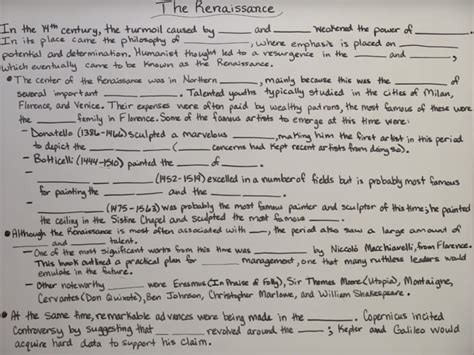 The Renaissance
In the 14th century, the turmoil caused by ______ and ______ weakened the power of ______.
In its place came the philosophy of ______, where emphasis is placed on ______
potential and determination. Humanist thought led to a resurgence in the ______ and ______,
which eventually came to be known as the Renaissance.
• The center of the Renaissance was in Northern ______, mainly because this was the ______ of
several important ______. Talented youths typically studied in the cities of Milan,
Florence, and Venice. Their expenses were often paid by wealthy patrons, the most famous of these were
the ______ family in Florence. Some of the famous artists to emerge at this time were:
- Donatello (1386-1466) sculpted a marvelous ______, making him the first artist in this period
to depict the ______ (concerns had kept recent artists from doing so).
- Botticelli (1444-1510) painted the ______ of ______.
- ______ (1452-1519) excelled in a number of fields but is probably most famous
for painting the ______ and the ______.
- ______ (1475-1563) was probably the most famous painter and sculptor of this time; he painted
the ceiling in the Sistine Chapel and sculpted the most famous ______.
• Although the Renaissance is most often associated with ______, the period also saw a large amount of
______ and ______ talent.
- One of the most significant works from this time was ______ by Niccoló Macchiavelli, from Florence.
This book outlined a practical plan for ______ management, one that many ruthless leaders would
emulate in the future.
- Other noteworthy ______ were Erasmus (In Praise of Folly), Sir Thomas More (Utopia), Montaigne,
Cervantes (Don Quixote), Ben Johnson, Christopher Marlowe, and William Shakespeare.
• At the same time, remarkable advances were being made in the ______. Copernicus incited
controversy by suggesting that ______ revolved around the ______; Kepler and Galileo would
acquire hard data to support his claim.